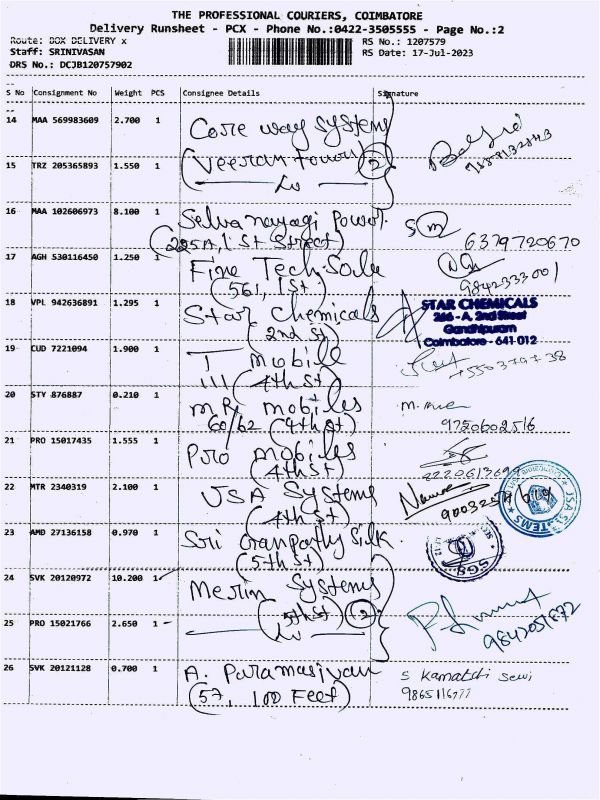 THE PROFESSIONAL COURIERS, COIMBATORE
Delivery Runsheet - PCX - Phone No.:0422-3505555 - Page No.:2
Route: BOX DELIVERY x
RS No.: 1207579
Staff: SRINIVASAN
RS Date: 17-Jul-2023
DRS No.: DCJB120757902
S No Consignment No Weight PCS Consignee Details Signature
14 MAA 569983609 2.700 1 Core way Systems
15 TRZ 205365893 1.550 1 (Veeran tower) 2
16 MAA 102606973 8.100 1 Selva nayagi Power
(225A, 1st Street) 6379720670
17 AGH 530116450 1.250 1 Fine Tech Sale
(561, 1st) 9842333001
18 VPL 942636891 1.295 1 Star Chemicals
(2nd st)
STAR CHEMICALS
286 - A, 2nd Street
Gandhipuram
Coimbatore - 641 012
19 CUD 7221094 1.900 1 T mobile
111 (4th st)
20 STY 876887 0.210 1 MR mobiles
60/62 (4th st) 9720602516
21 PRO 15017435 1.555 1 Pro mobiles
(4th st)
22 MTR 2340319 2.100 1 JSA Systems
(4th st)
JSA SYSTEMS
23 AMD 27136158 0.970 1 Sri Ganpathy Silk
(5th st)
SGS
24 SVK 20120972 10.200 1 Merim Systems
(5th st) 2
25 PRO 15021766 2.650 1 9842051672
26 SVK 20121128 0.700 1 A. Paramasivan S Kamatchi
(57, 100 Feet)